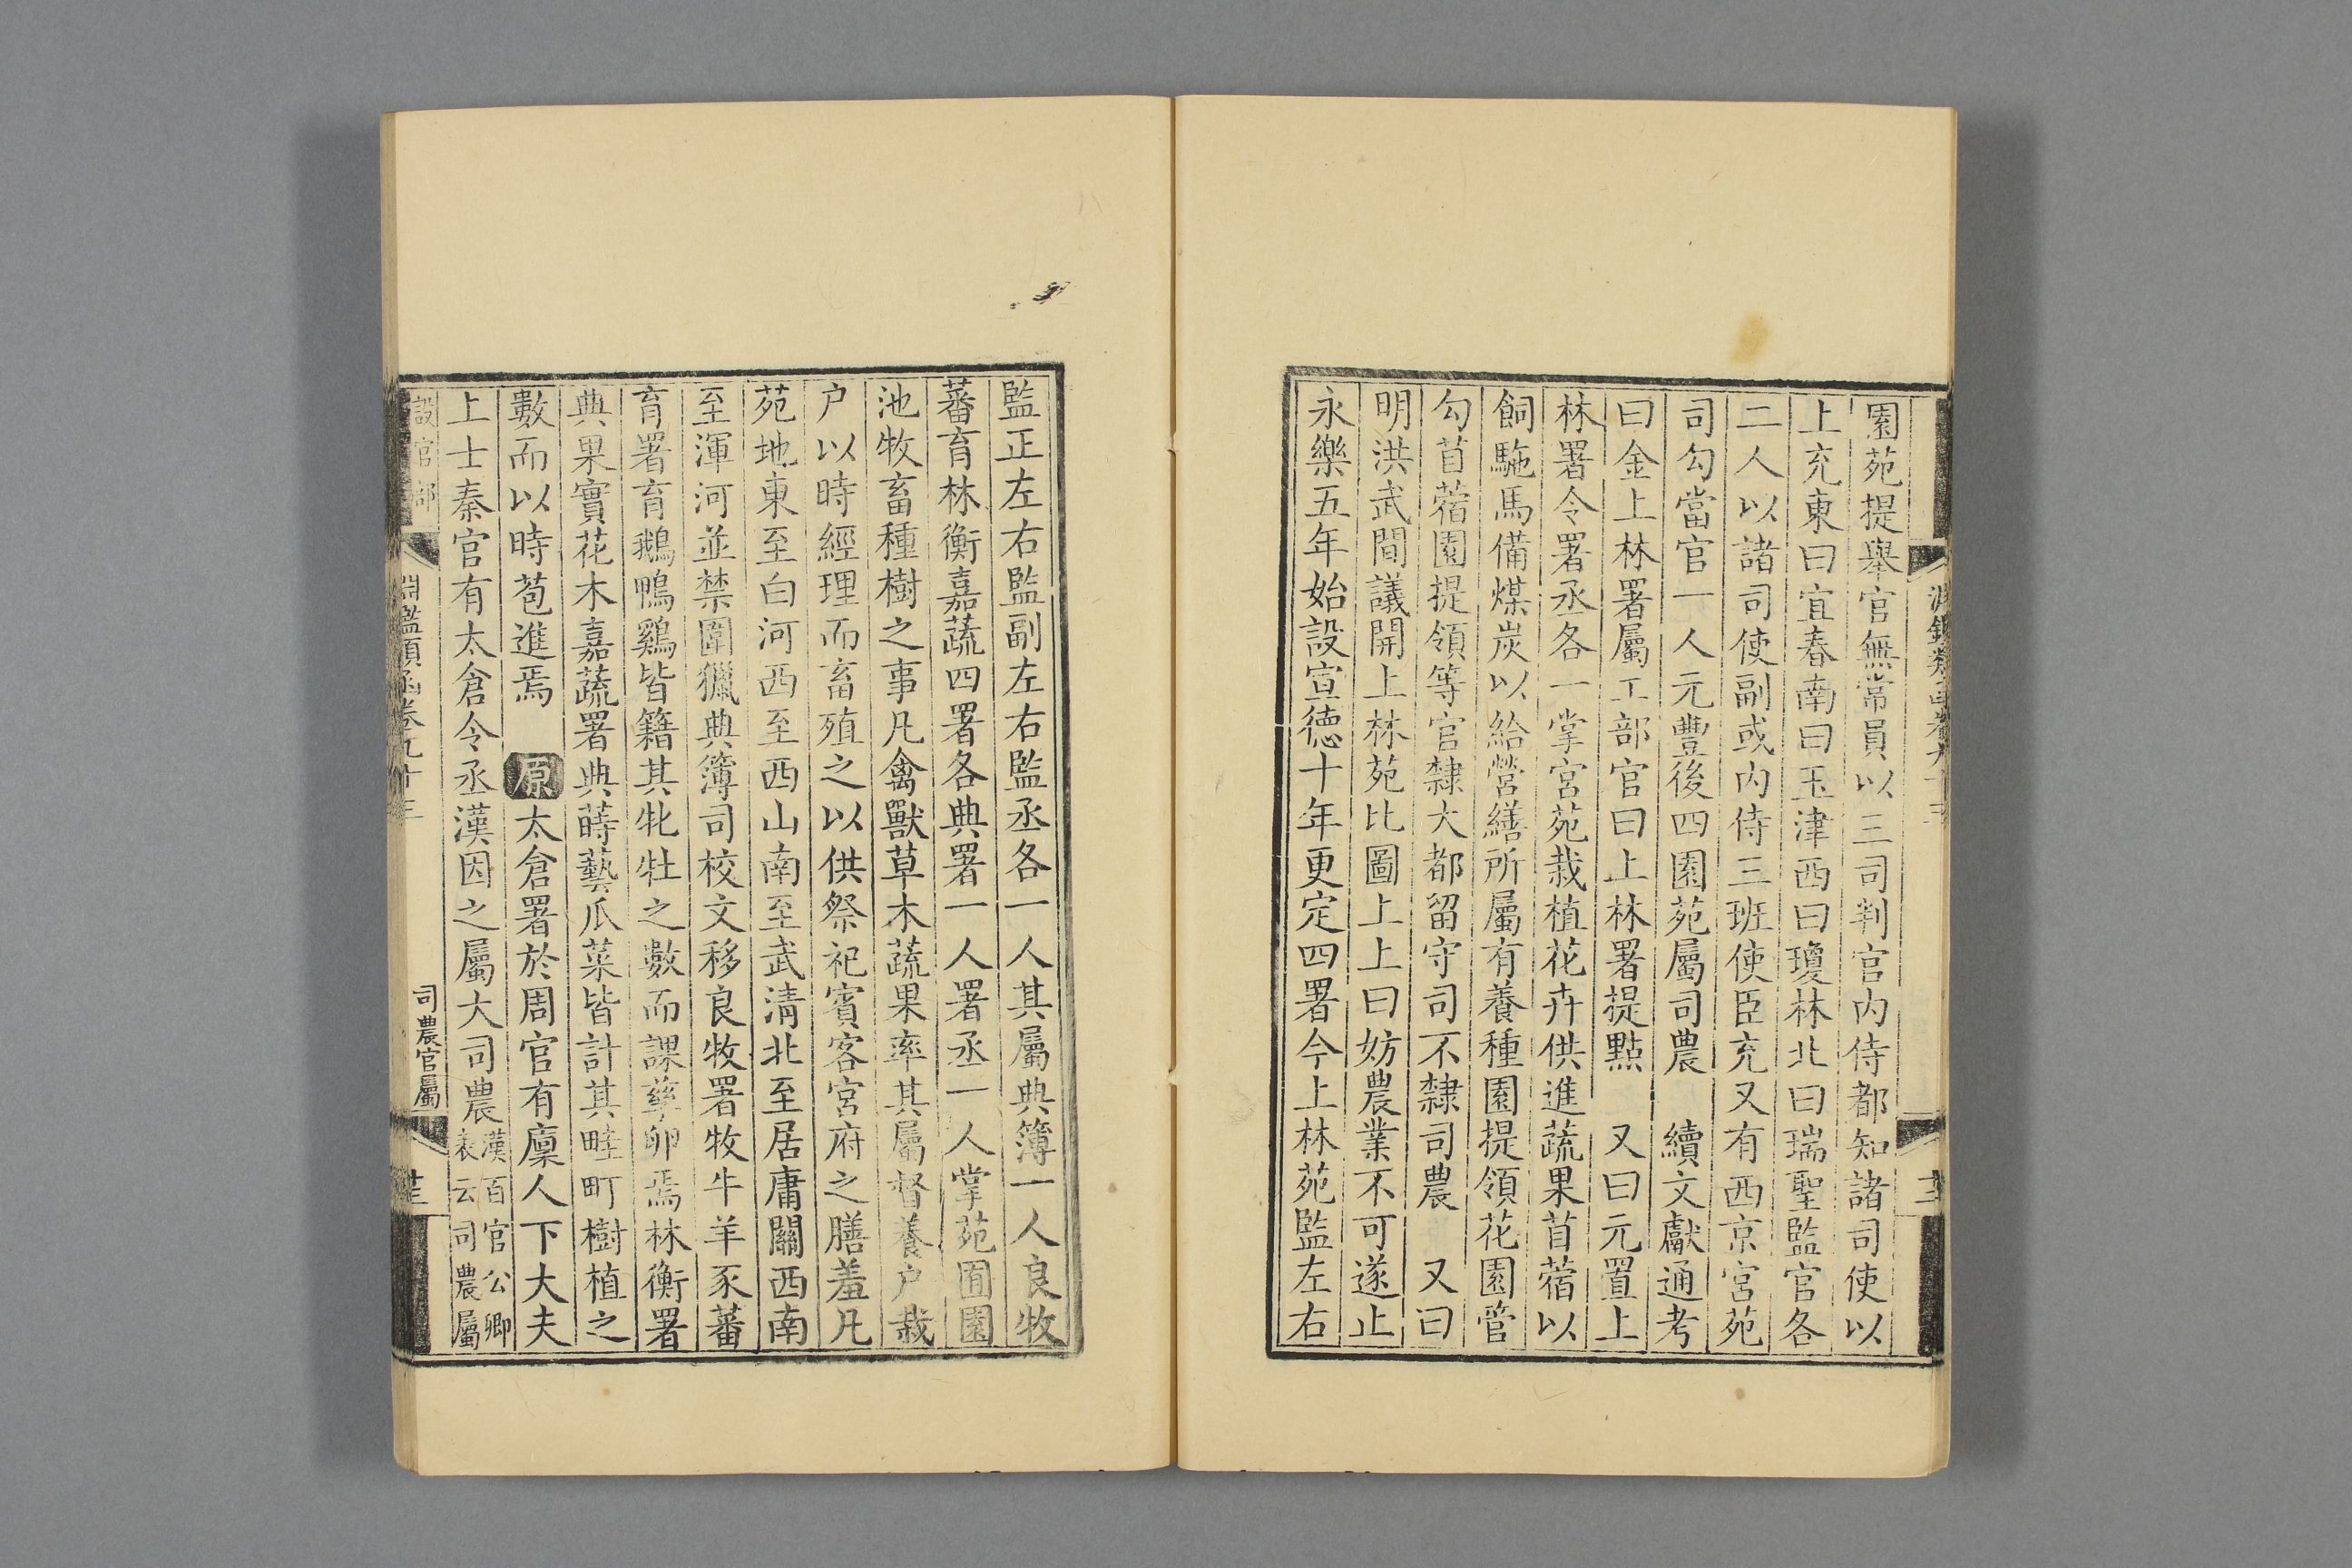 園苑提舉官無常員以三司判官內侍都知諸司使以
上充東曰宜春南曰玉津西曰瓊林北曰瑞聖監官各
二人以諸司使副或內侍三班使臣充又有西京宮苑
司勾當官一人元豐後四園苑屬司農　續文獻通考
曰金上林署屬工部官曰上林署提點　又曰元置上
林署令署丞各一掌宮苑栽植花卉供進蔬果苜蓿以
飼駞馬備煤炭以給營繕所屬有養種園提領花園管
勾苜蓿園提領等官隸大都留守司不隸司農　又曰
明洪武間議開上林苑比圖上上曰妨農業不可遂止
永樂五年始設宣德十年更定四署今上林苑監左右
監正左右監副左右監丞各一人其屬典簿一人良牧
蕃育林衡嘉蔬四署各典署一人署丞一人掌苑囿園
池牧畜種樹之事凡禽獸草木蔬果率其屬督養户栽
户以時經理而畜殖之以供祭祀賓客宮府之膳羞凡
苑地東至白河西至西山南至武清北至居庸關西南
至渾河並禁圍獵典簿司校文移良牧署牧牛羊豕蕃
育署育鵝鴨鷄皆籍其牝牡之數而課孳卵焉林衡署
典果實花木嘉蔬署典蒔藝瓜菜皆計其畦町樹植之
數而以時苞進焉　原太倉署於周官有廩人下大夫
上士秦官有太倉令丞漢因之屬大司農漢百官公卿
表云司農屬
設官部　淵鑑類函卷九十三　司農官屬